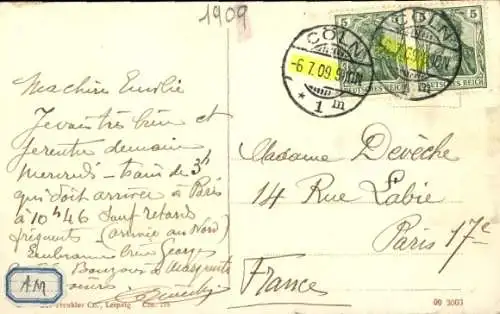 1909
5 5
CÖLN
-6.7.09.9-10N.
* 1 m
DEUTSCHES REICH
CÖLN
-6.7.09.9-10N.
DEUTSCHES REICH
Ma chère Emilie
Je vais très bien et
je rentre demain
mercredi - train de 3h
qui doit arriver à Paris
à 10h46 sauf retards
fréquents (arrivée au Nord)
Embrasse bien Georges
Bonjour à Marguerite
AM
Madame Devêche
14 Rue Labie
Paris 17e
France
Trenkler Co., Leipzig
09 3003